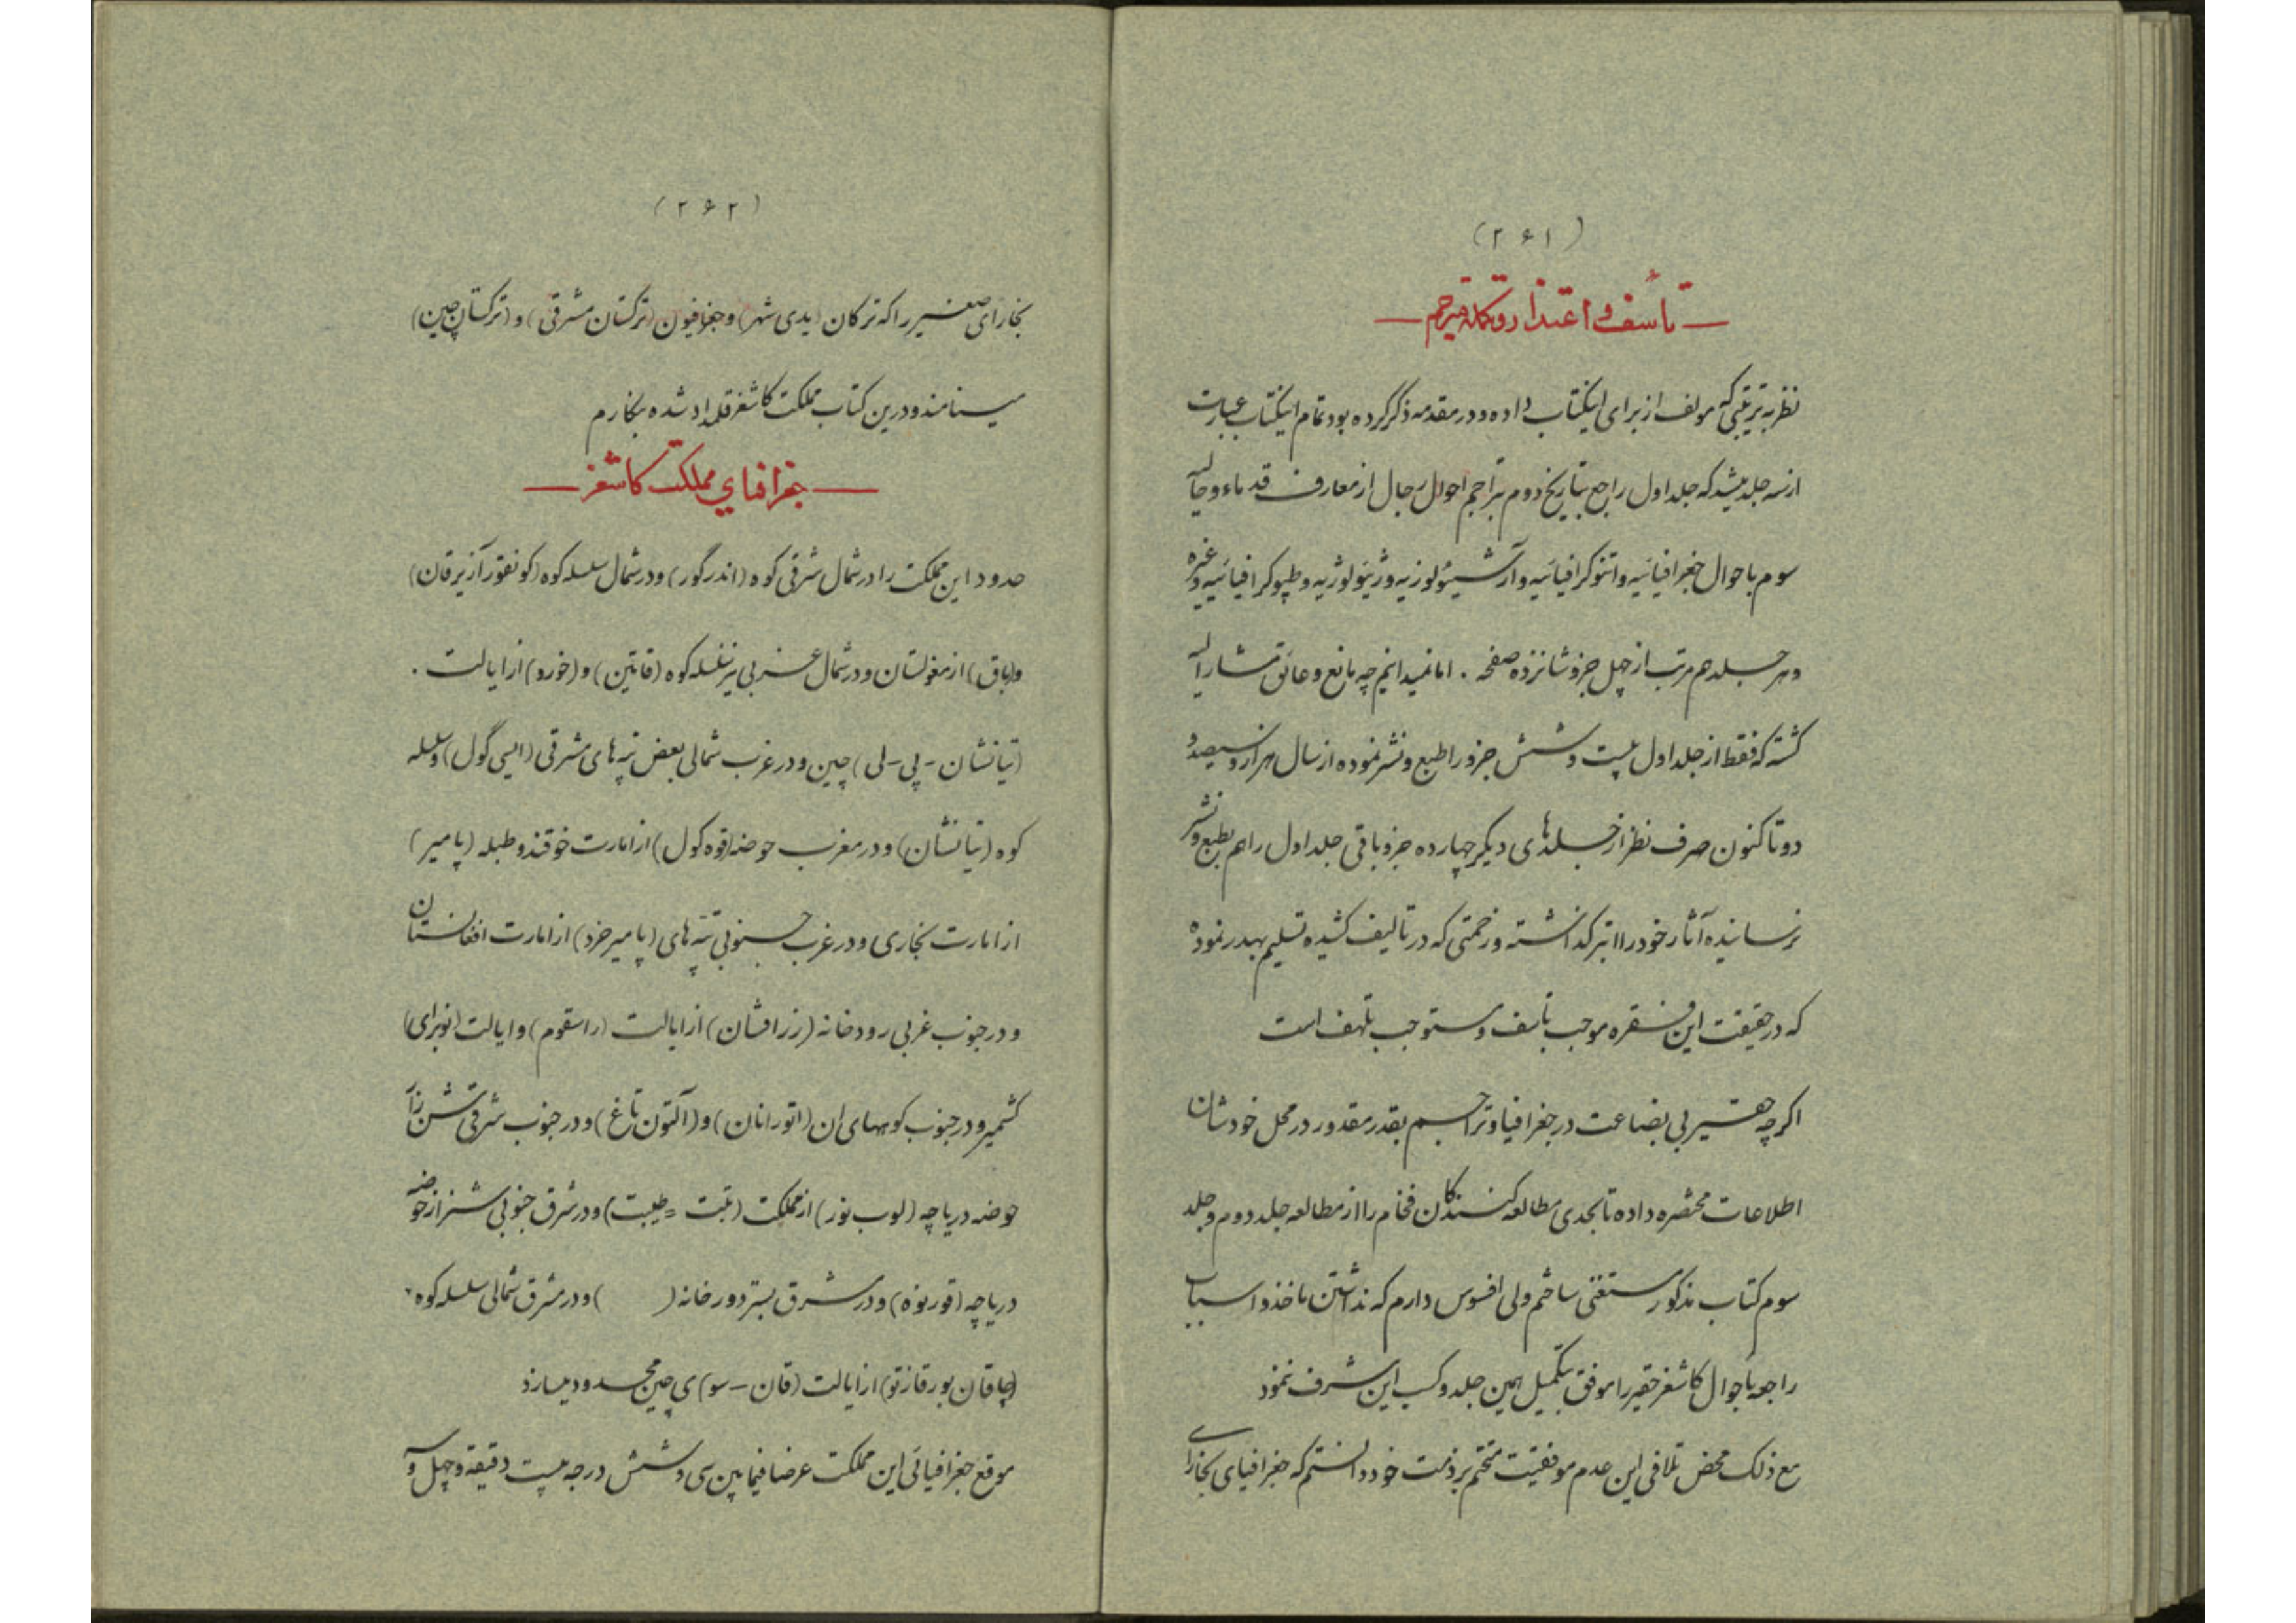 (۲۶۱)
— تأسف و اعتذار و تکملهٔ مترجم —
نظر به ترتیبی که مولف از برای اینکتاب داده و در مقدمه ذکر کرده بود تمام اینکتاب عبارت
از سه جلد میشد که جلد اول راجع بتاریخ دوم بتراجم احوال رجال از معارف قدماء و حالیه
سوم باحوال جغرافیائیه و اتنوکرافیائیه و آرشیئولوزیه و ژیئولوژیه و طپوکرافیائییه و غیره
و هر جلد هم مرتب از چهل جزو شانزده صفحه . اما نمیدانیم چه مانع و عائق مشارالیه
کشته که فقط از جلد اول بیست و شش جزو را طبع و نشر نموده از سال هزار و سیصد و
دو تا کنون صرف نظر از جلدهای دیکر چهارده جزو باقی جلد اول را هم بطبع و نشر
نرسانیده آثار خود را ابتر کذاشته و زحمتی که در تالیف کشیده تسلیم بهدر نموده
که در حقیقت این فقره موجب تأسف و مستوجب تلهف است
اکرچه حقیر بی بضاعت در جغرافیا و تراجم بقدر مقدور در محل خودشان
اطلاعات مختصره داده تا بحدی مطالعه کنندکان فخام را از مطالعه جلد دوم و جلد
سوم کتاب مذکور مستغنی ساختم ولی افسوس دارم که نداشتن ماخذ و اسباب
راجعه باحوال کاشغر حقیر را موفق بتکمیل همین جلد و کسب این شرف ننمود
مع ذلک محض تلافی این عدم موفقیت متحتم بر ذمت خود دانستم که جغرافیای بخارای
(۲۶۲)
بخارای صغیر را که ترکان (یدی شهر) و جغرافیون (ترکستان مشرقی) و (ترکستان چین)
مینامند و درین کتاب مملکت کاشغر قلمداد شده بنکارم
— جغرافیای مملکت کاشغر —
حدود این مملکت را در شمال شرقی کوه (اندرگور) و در شمال سلسله کوه (کونغور آزیرقان)
و (باق) از مغولستان و در شمال غربی نیز سلسله کوه (قاتین) و (خورو) از ایالت .
(تیانشان - پی - لی) چین و در غرب شمالی بعض تپه های مشرقی (ایسی گول) و سلسله
کوه (تیانشان) و در مغرب حوضه (قوه کول) از امارت خوقند و طبله (پامیر)
از امارت بخاری و در غرب جنوبی تپه های (پامیر خرد) از امارت افغانستان
و در جنوب غربی رودخانه (زرافشان) از ایالت (راسقوم) و ایالت (نوبرای)
کشمیر و در جنوب کوههای ان (اتورانان) و (آلتون تاغ) و در جنوب شرقیتش نیز از
حوضه دریاچه (لوب نور) از مملکت (تبت = طیبت) و در شرق جنوبی نیز از حوضه
دریاچه (قورنوه) و در شرق بستر دورخانه ( ) و در مشرق شمالی سلسله کوه
(چاقان بورقازتو) از ایالت (قان - سو) ی چین محدود میسازد
موقع جغرافیائی این مملکت عرضا فیما بین سی و شش درجه بیست دقیقه و چهل و سه